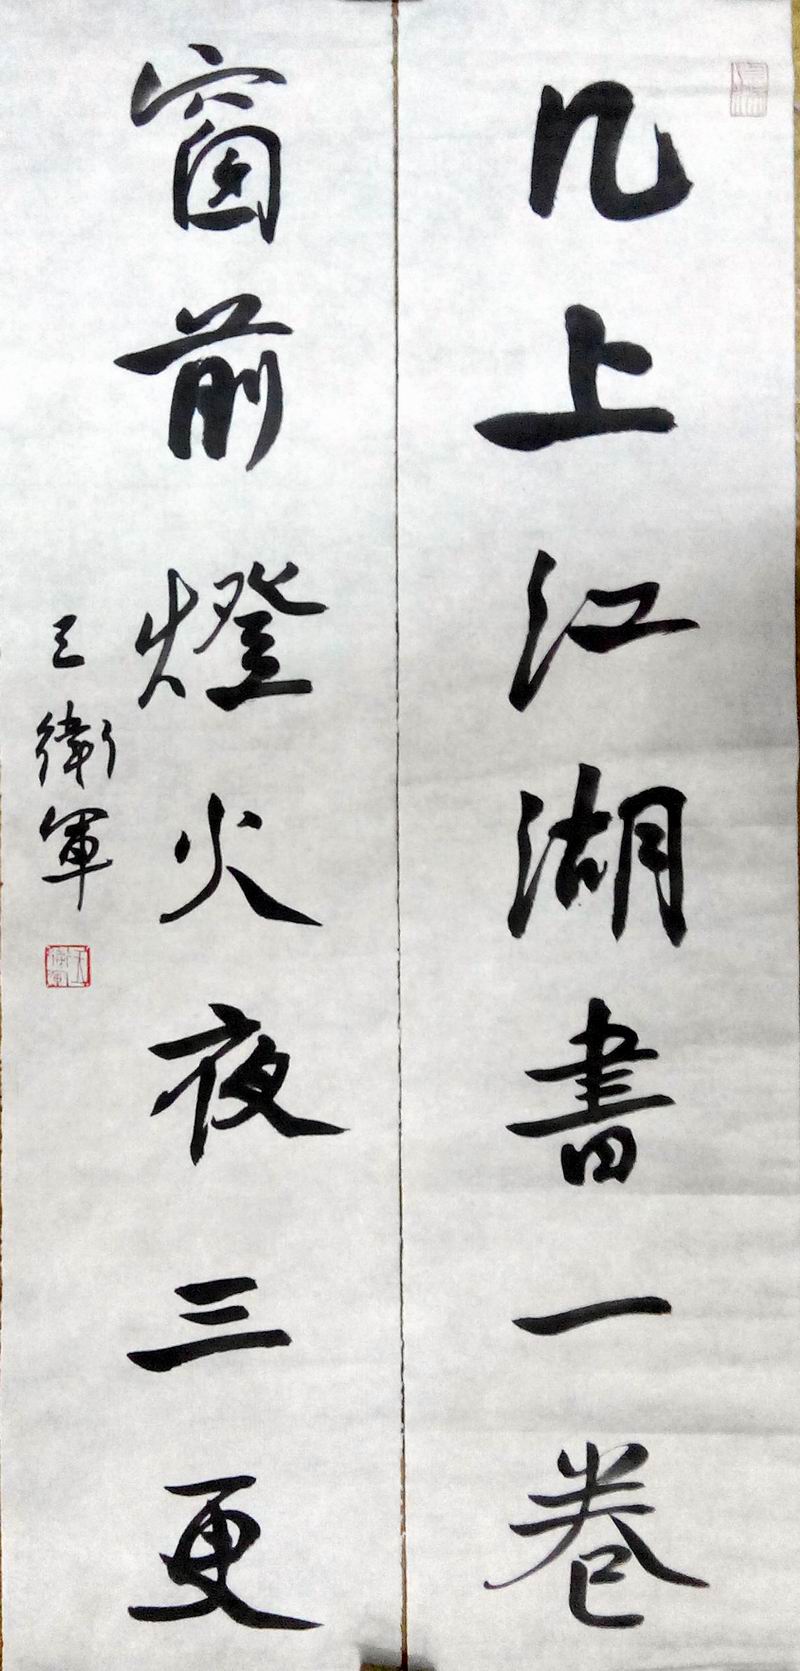 几上江湖書一卷
窗前燈火夜三更
王衛軍
王衛軍